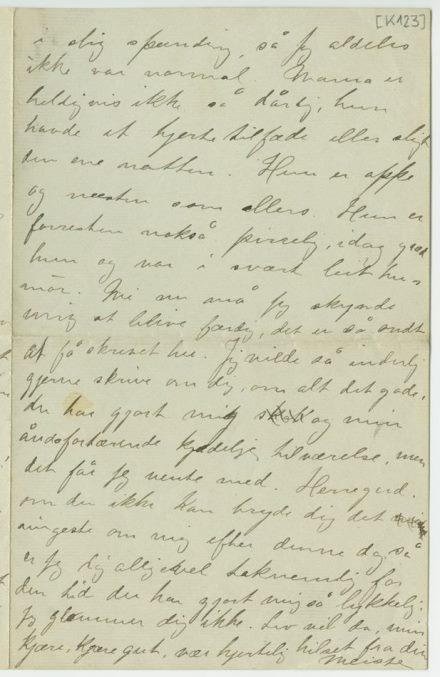 [K123]
i slig spænding, så jeg aldeles
ikke var normal. Mama er
heldigvis ikke så dårlig, hun
havde et hjertetilfælde eller sligt
den ene natten. Hun er oppe
og næsten som ellers. Hun er
forresten nokså pirrelig, idag græd
hun og var i svært leit hu-
mør. Men nu må jeg skynde
mig at blive færdig, det er så ondt
at få skrevet her. Jeg vilde så inderlig
gjerne skrive om dig, om alt det gode,
du har gjort mig og min
åndsfortærende kjedelige tilværelse, men
det får jeg vente med. Herregud,
om du ikke kan bryde dig det
ringeste om mig efter denne dag, så
er jeg dig alligevel taknemlig for
den tid du har gjort mig så lykkelig.
Jeg glemmer dig ikke. Lev vel da, min
kjære, kjære gut, vær hjertelig hilset fra din
Meisse